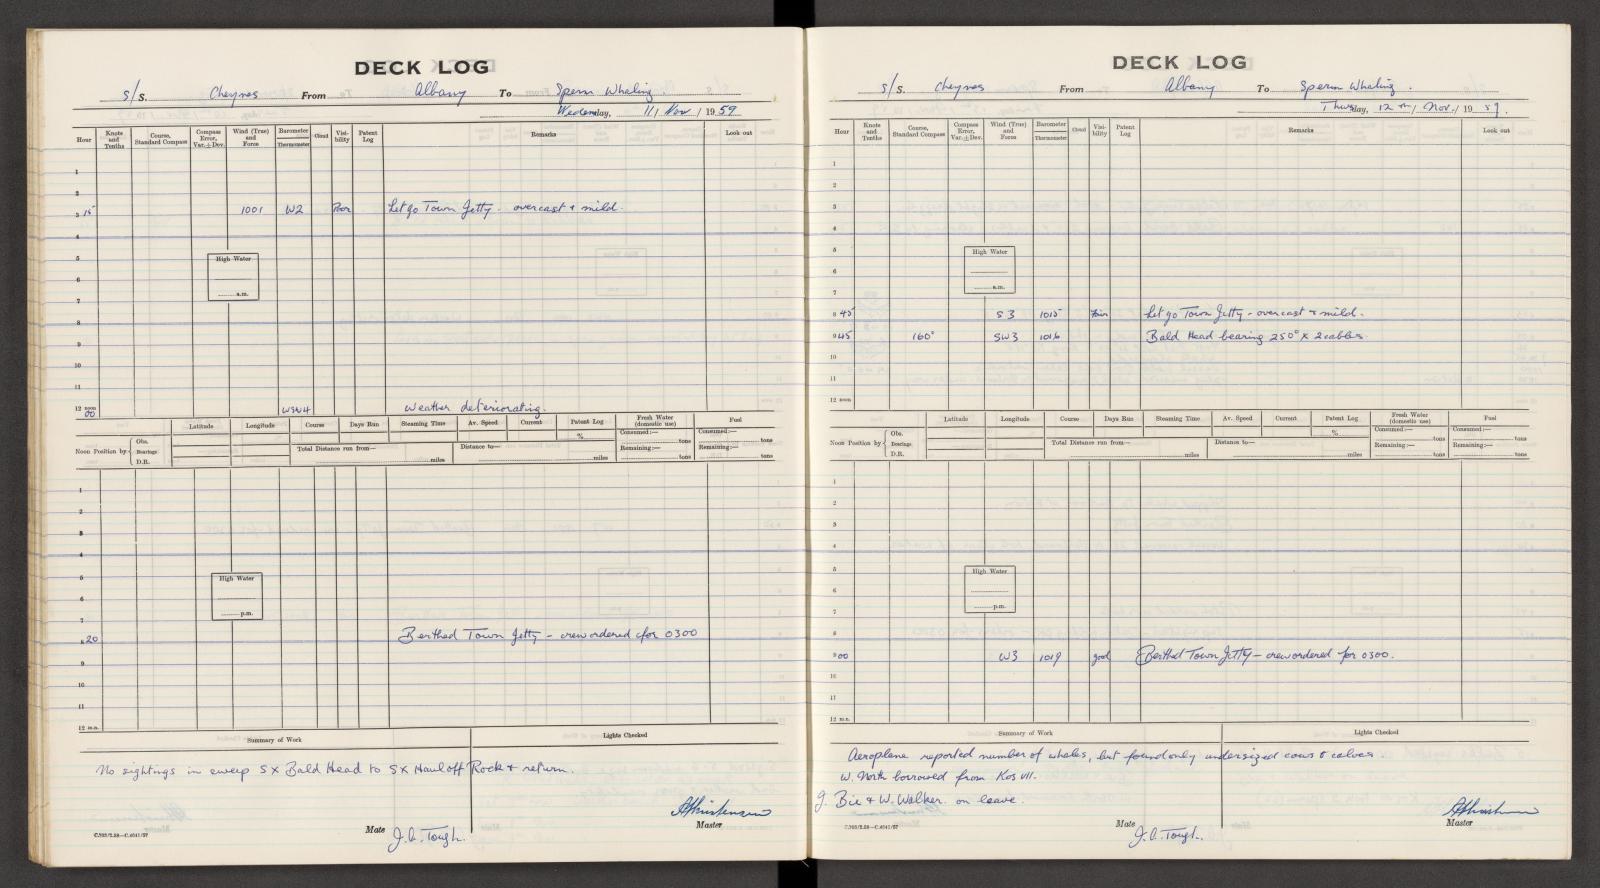 DECK LOG
S/S. Cheynes From Albany To Sperm Whaling.
Wednesday, 11 / Nov / 1959
Hour Knots and Tenths Course, Standard Compass Compass Error, Var. ± Dev. Wind (True) and Force Barometer Thermometer Cloud Visibility Patent Log Remarks Look out
1
2
3 15 1001 W2 Poor Let go Town Jetty - overcast & mild.
4
5 High Water
6
7 a.m.
8
9
10
11
12 noon 00 WSW4 Weather deteriorating.
Latitude Longitude Course Days Run Steaming Time Av. Speed Current Patent Log % Fresh Water (domestic use) Fuel
Noon Position by Obs. Bearings D.R. Total Distance run from— miles Distance to— miles Consumed:— tons Remaining:— tons Consumed:— tons Remaining:— tons
1
2
3
4
5 High Water
6
7 p.m.
8 20 Berthed Town Jetty - crew ordered for 0300
9
10
11
12 m.n.
Summary of Work Lights Checked
No sightings in sweep S x Bald Head to S x Hauloff Rock & return.
Master
Mate J. A. Tough.
DECK LOG
S/S. Cheynes From Albany To Sperm Whaling.
Thursday, 12th / Nov. / 1959.
Hour Knots and Tenths Course, Standard Compass Compass Error, Var. ± Dev. Wind (True) and Force Barometer Thermometer Cloud Visibility Patent Log Remarks Look out
1
2
3
4
5 High Water
6
7 a.m.
8 45 S3 1015 Fair Let go Town Jetty - overcast & mild.
9 45 160° SW3 1016 Bald Head bearing 250° x 2 cables.
10
11
12 noon
Latitude Longitude Course Days Run Steaming Time Av. Speed Current Patent Log % Fresh Water (domestic use) Fuel
Noon Position by Obs. Bearings D.R. Total Distance run from— miles Distance to— miles Consumed:— tons Remaining:— tons Consumed:— tons Remaining:— tons
1
2
3
4
5 High Water
6
7 p.m.
8
9 00 W3 1019 good Berthed Town Jetty - crew ordered for 0300.
10
11
12 m.n.
Summary of Work Lights Checked
Aeroplane reported number of whales, but found only undersized cows & calves.
W. North borrowed from Kos VII.
G. Bie & W. Walker. on leave.
Master
Mate J. A. Tough.